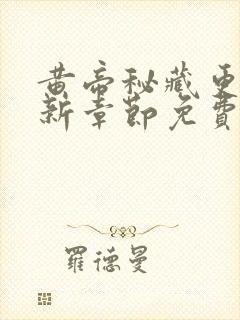 黄帝秘藏更
新章節免費
羅德曼